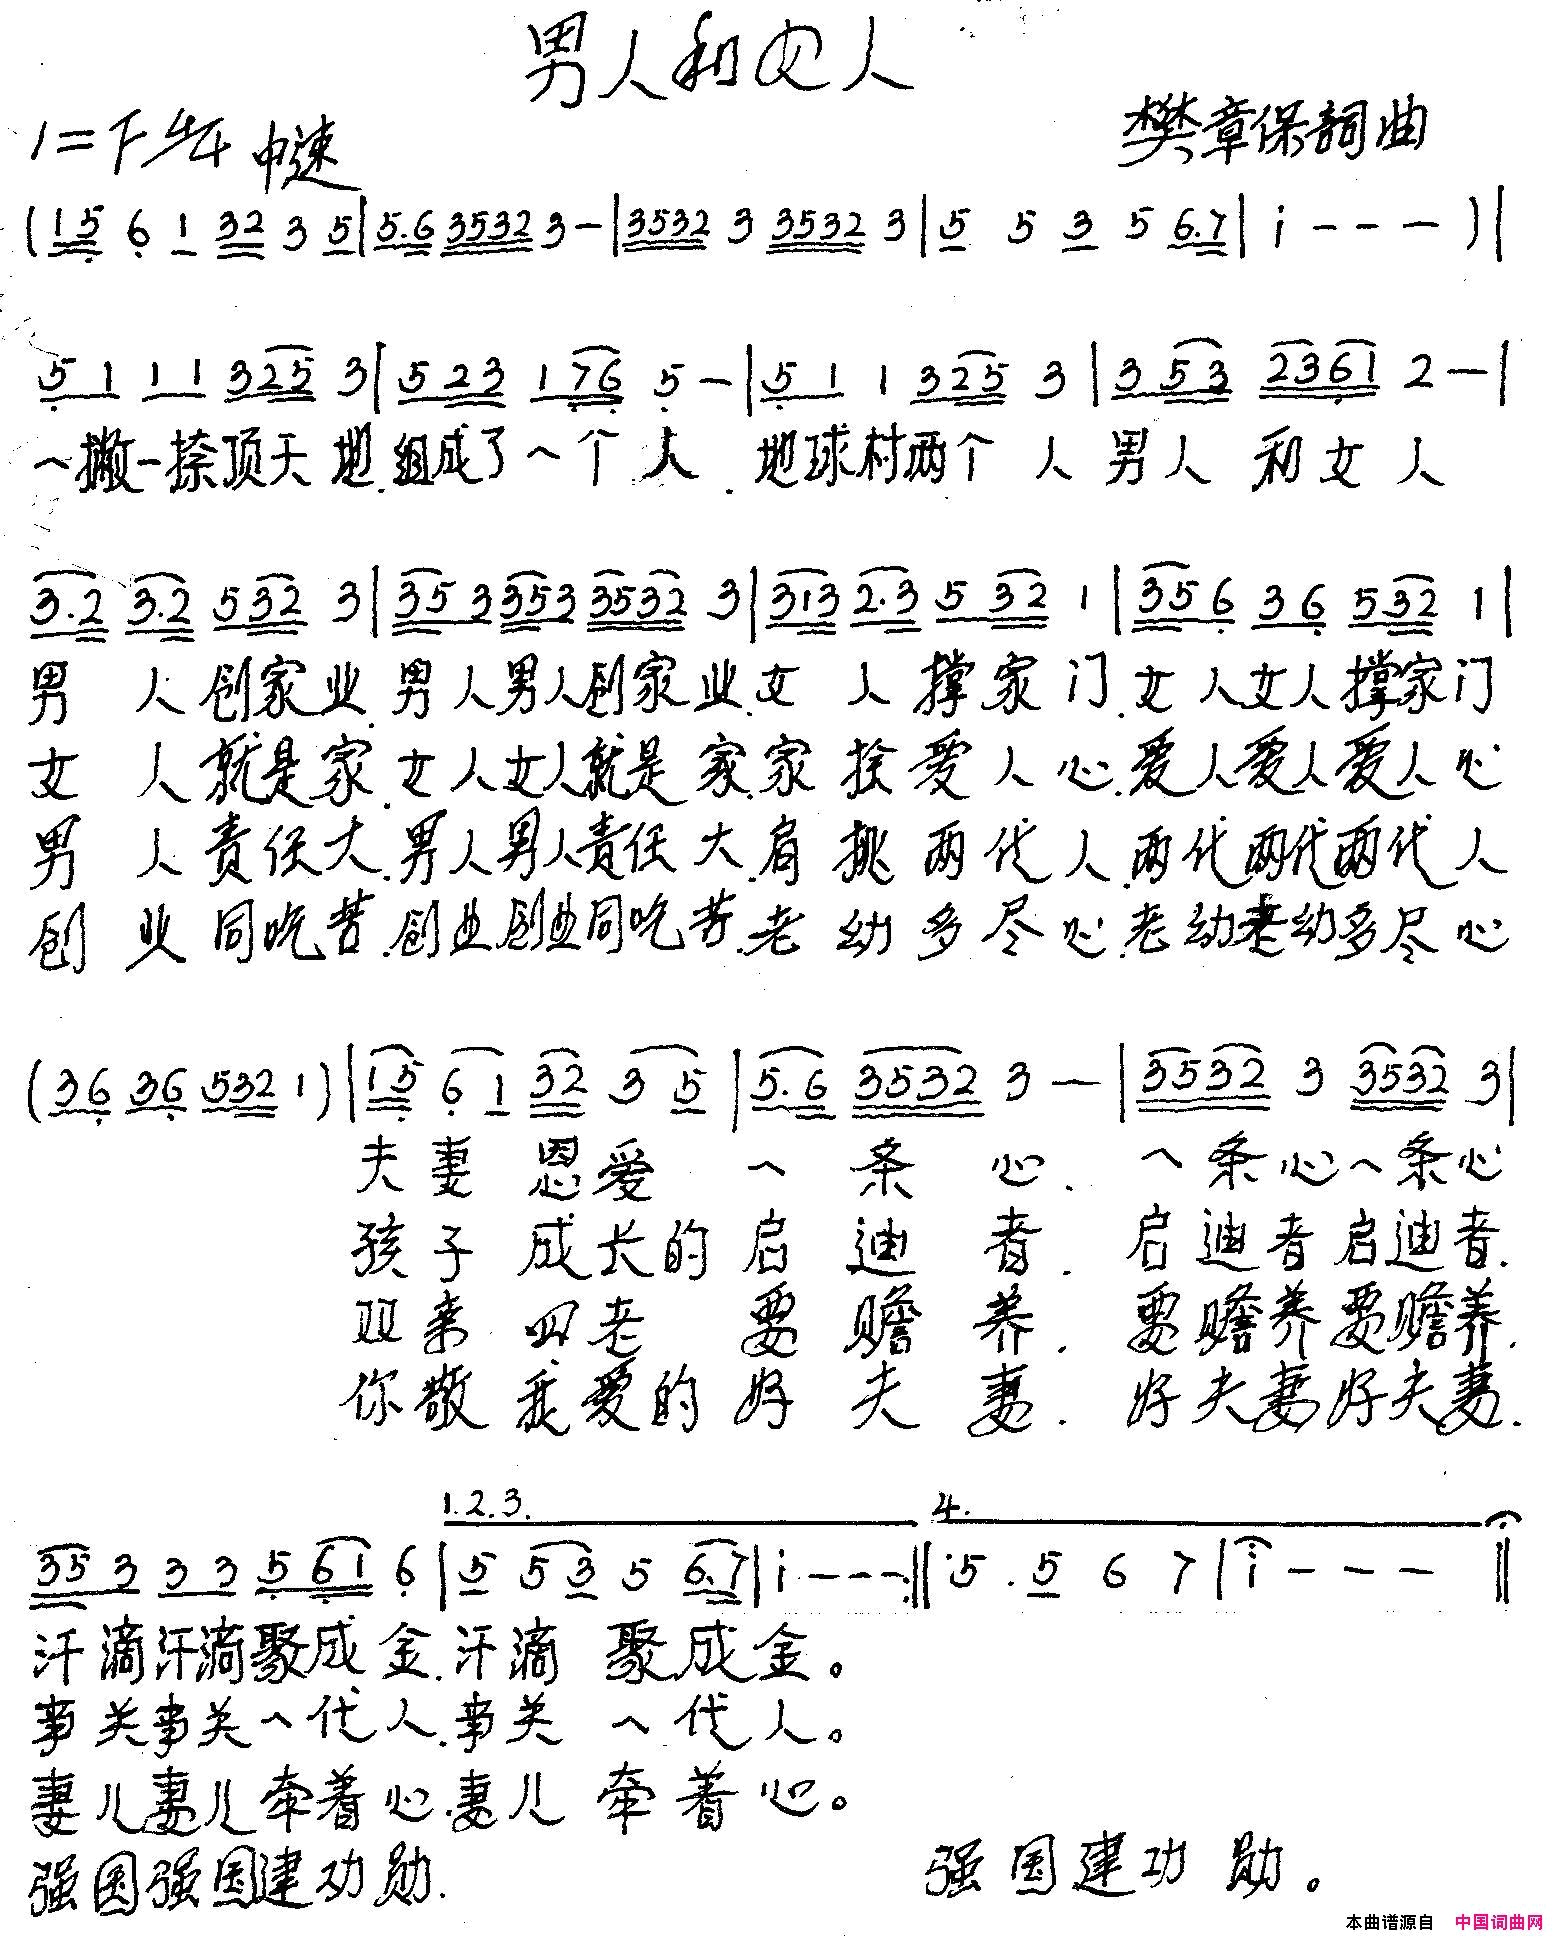 男人和女人
1=F 4/4 中速
樊章保詞曲
(15 6 1 32 3 5|5.6 3532 3-|3532 3 3532 3|5 5 3 5 6.7|i---)|
5 1 1 1 325 3|5 23 1 76 5-|5 1 1 325 3|3 53 2361 2-|
一撇一捺顶天地.组成了一个人.地球村两个人男人和女人
3.2 3.2 532 3|35 3 353 3532 3|313 2.3 5 32 1|356 36 532 1|
男人创家业.男人男人创家业.女人撑家门.女人女人撑家门
女人就是家.女人女人就是家.家拴爱人心.爱人爱人爱人心
男人责任大.男人男人责任大.肩挑两代人.两代两代两代人
创业同吃苦.创业创业同吃苦.老幼多尽心.老幼老幼多尽心
(36 36 532 1)|15 6 1 32 3 5|5.6 3532 3-|3532 3 3532 3|
夫妻恩爱一条心.一条心一条心
孩子成长的启迪者.启迪者启迪者.
双亲四老要赡养.要赡养要赡养.
你敬我爱的好夫妻.好夫妻好夫妻.
1.2.3. 4.
35 3 3 3 5 61 6|5 5 3 5 6.7|i---:‖5. 5 6 7|i---‖
汗滴汗滴聚成金.汗滴聚成金。
事关事关一代人.事关一代人。
妻儿妻儿牵着心.妻儿牵着心。
强国强国建功勋. 强国建功勋。
本曲谱源自 中国词曲网